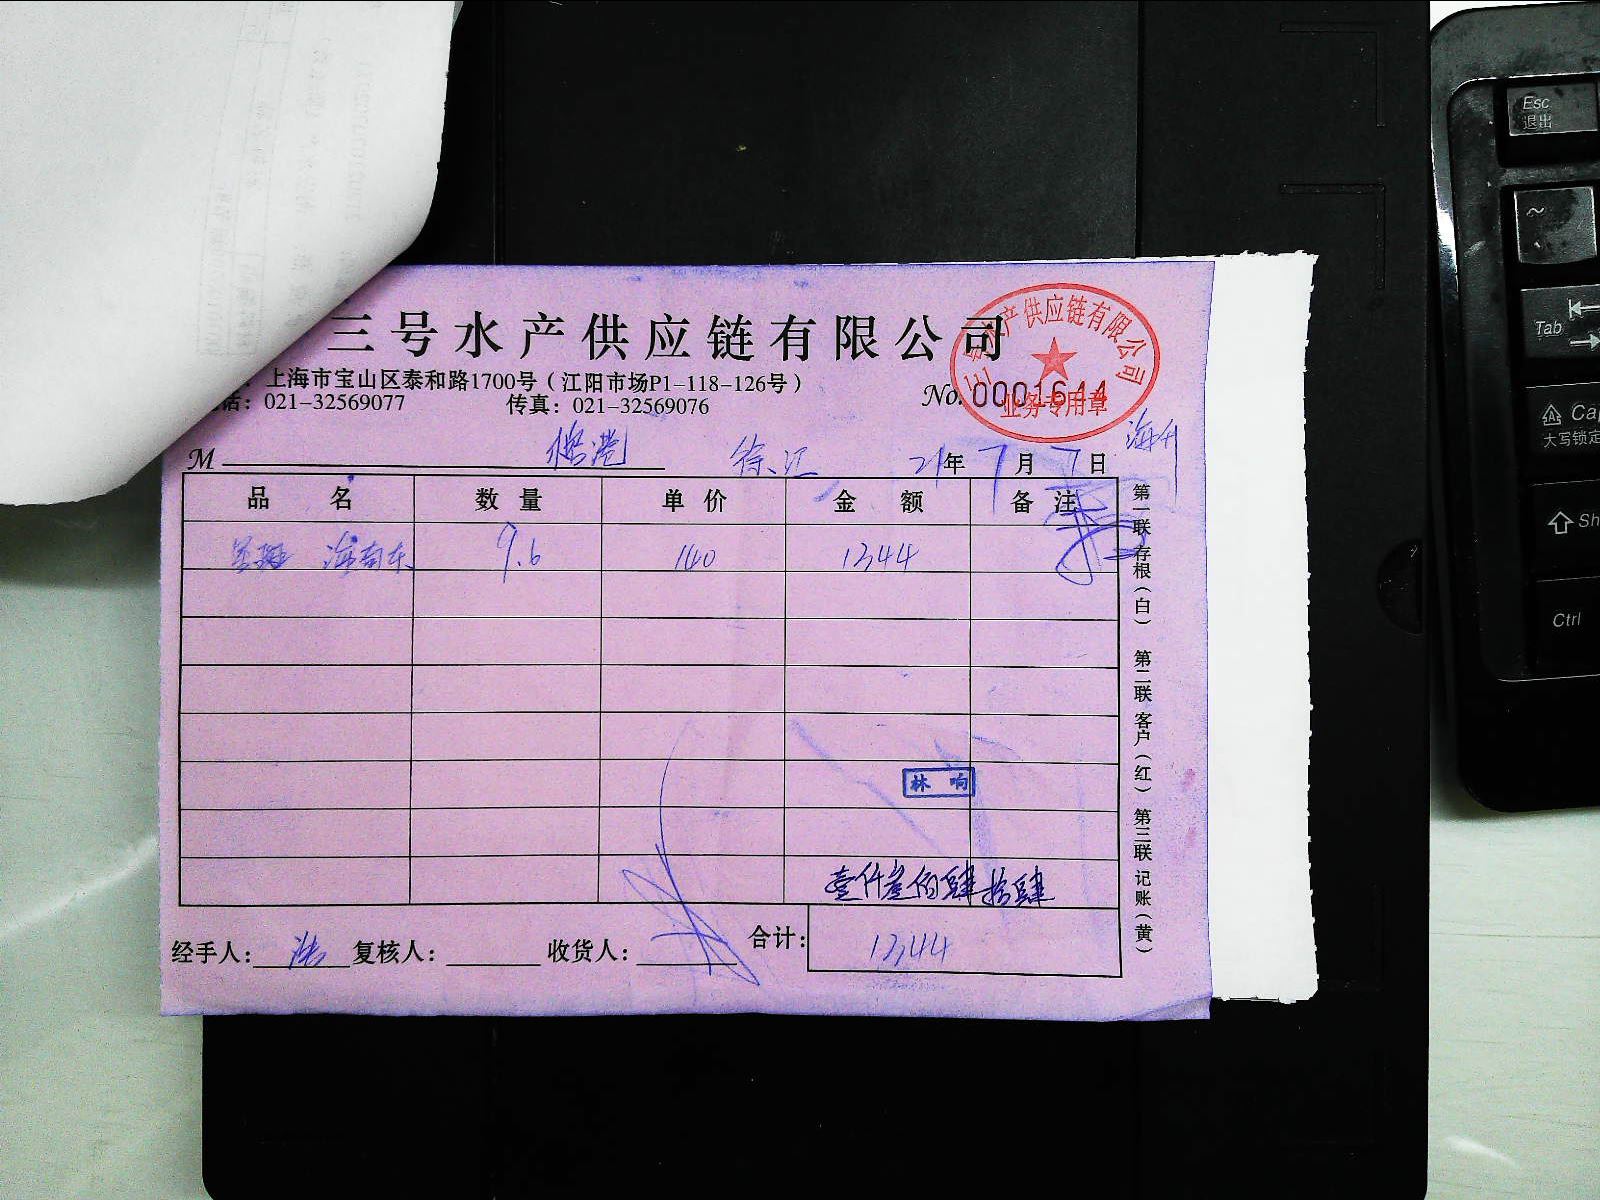 三号水产供应链有限公司
上海市宝山区泰和路1700号（江阳市场P1-118-126号）
话：021-32569077 传真：021-32569076
No. 0001644
三号水产供应链有限公司
业务专用章
M 徐汇 21年7月7日
品名 数量 单价 金额 备注
星斑 海南东 9.6 140 1344
林响
壹仟叁佰肆拾肆
经手人： 复核人： 收货人： 合计： 1344
第一联 存根（白） 第二联 客户（红） 第三联 记账（黄）
Esc
退出
~
Tab
Cap
大写锁定
Sh
Ctrl